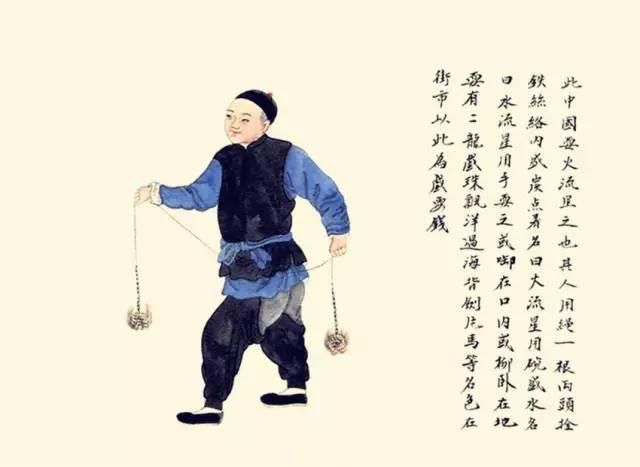 此中國耍火流星之也其人用繩一根兩頭拴
鉄絲絡內盛炭点着名曰火流星用碗盛水名
曰水流星用手耍之或啣在口內或柳卧在地
耍有二龍戲珠觀洋過海背劍片馬等名色在
街市以此為戲要錢